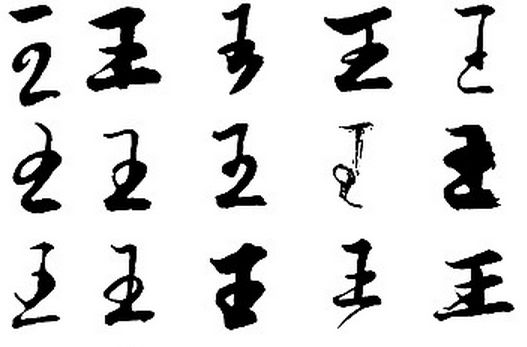 王 王 王 王 王
王 王 王 王 王
王 王 王 王 王